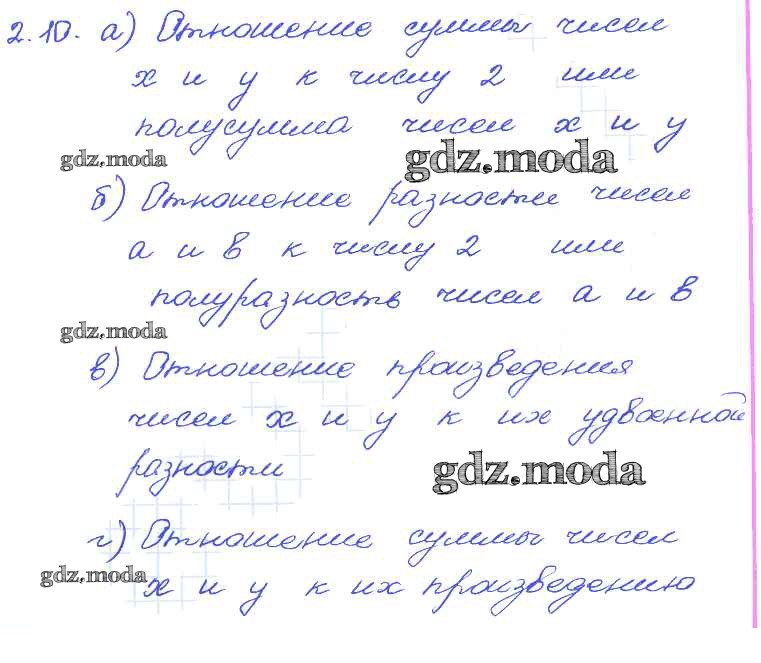 2.10. а) Отношение суммы чисел
х и у к числу 2 или
полусумма чисел х и у
gdz.moda gdz.moda
б) Отношение разности чисел
а и в к числу 2 или
полуразность чисел а и в
gdz.moda
в) Отношение произведения
чисел х и у к их удвоенной
разности gdz.moda
г) Отношение суммы чисел
gdz.moda
х и у к их произведению